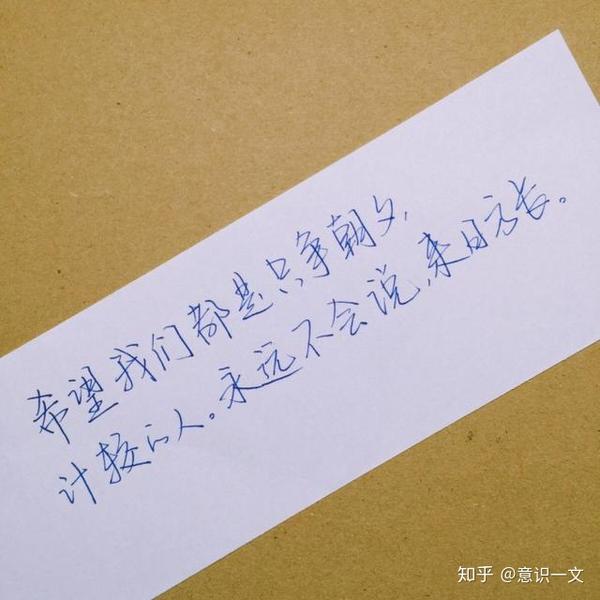 希望我们都是只争朝夕,
计较的人。永远不会说,来日方长。
知乎 @意识一文